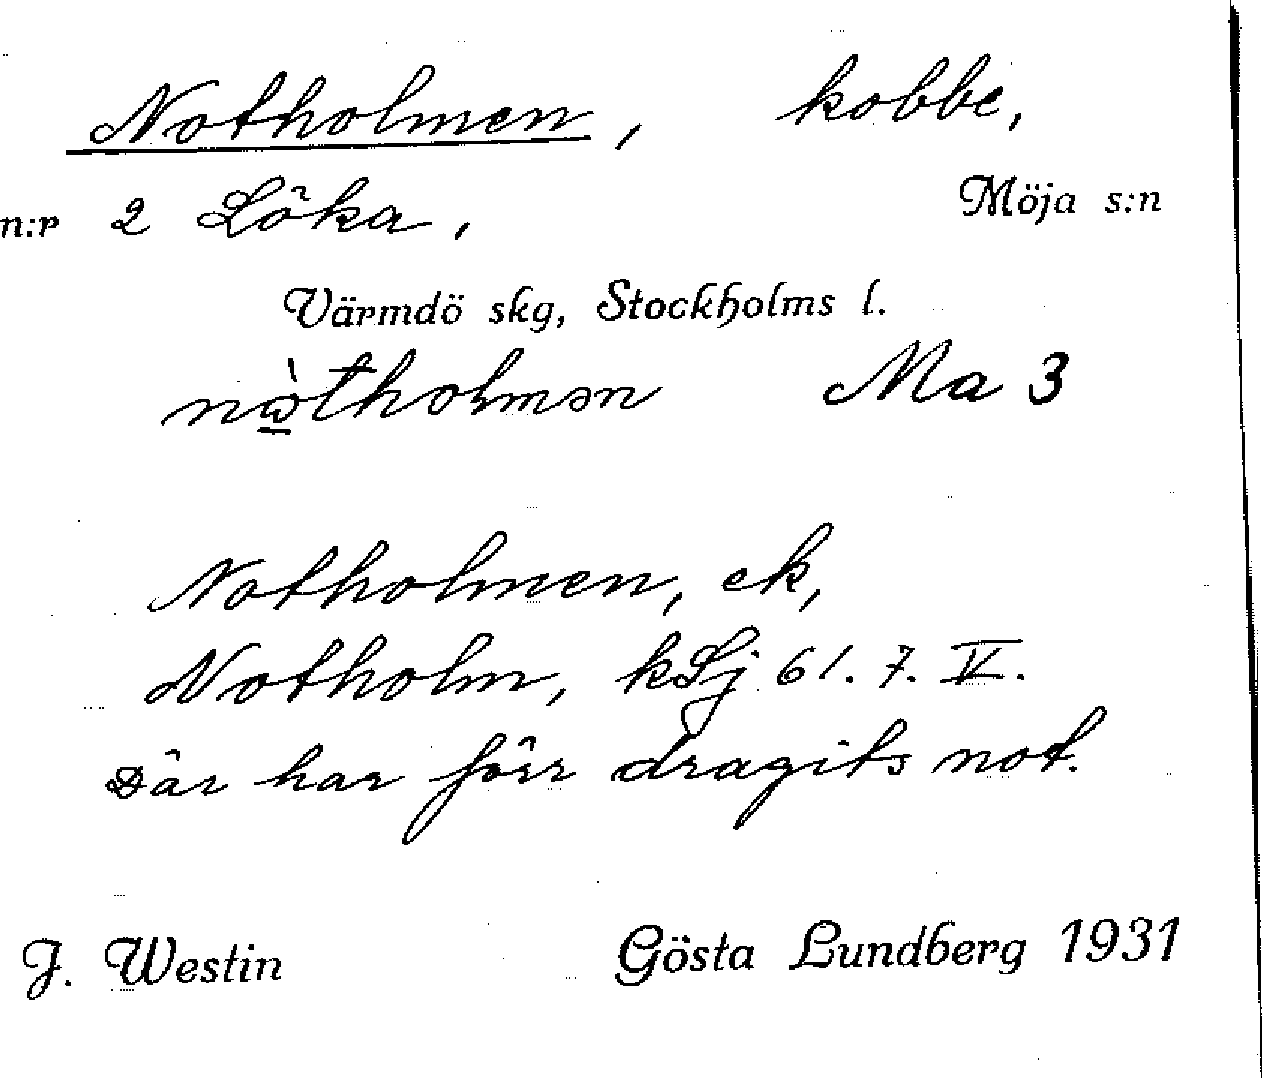 Notholmen, kobbe,
n:r 2 Löka, Möja s:n
Värmdö skg, Stockholms l.
nὼ̲tholmən Ma 3
Notholmen, ek,
Notholm, kSj 61. 7. V.
Där har förr dragits not.
J. Westin Gösta Lundberg 1931